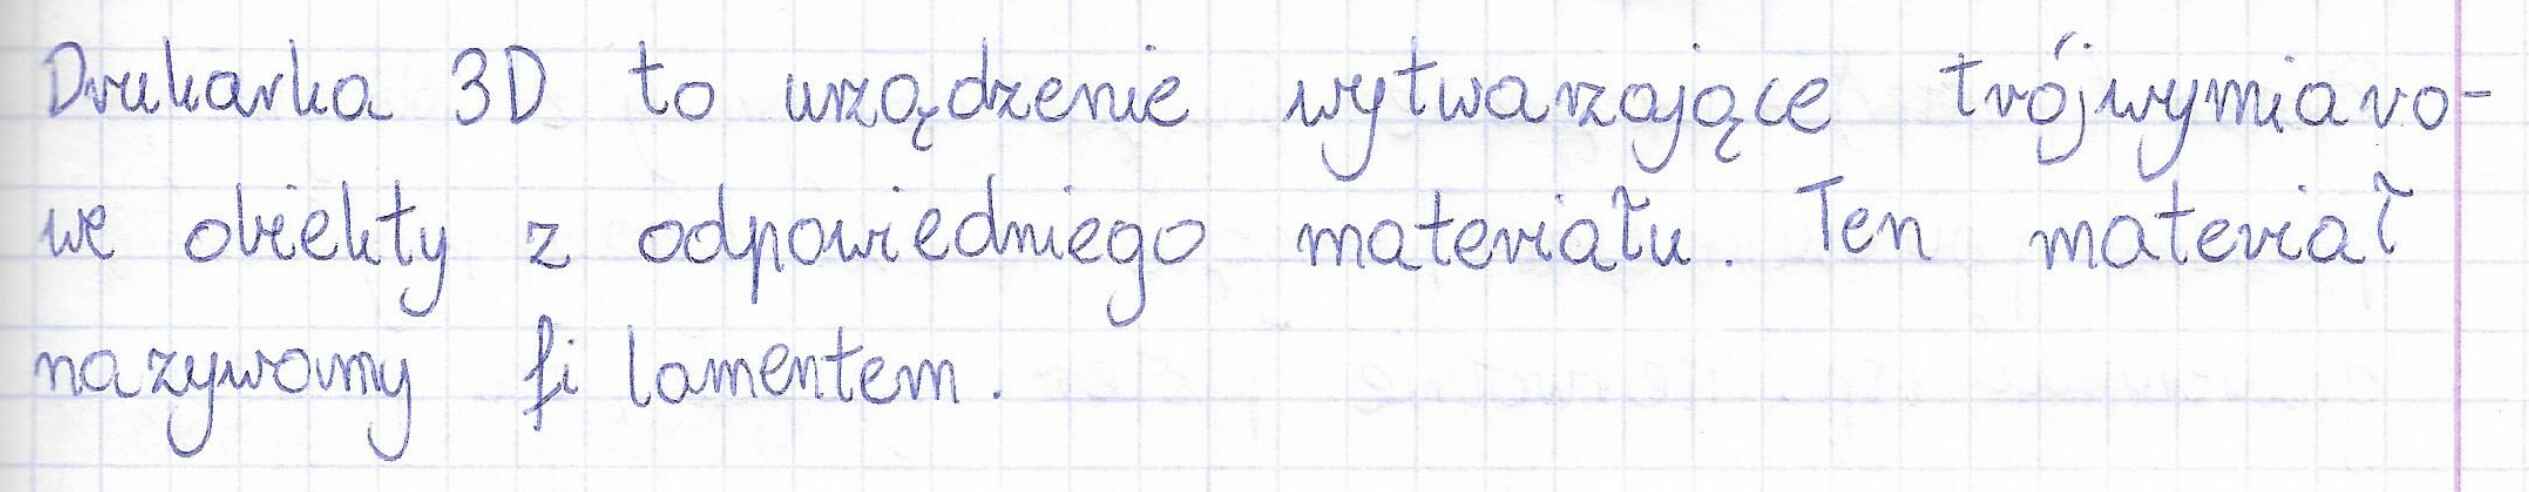 Drukarka 3D to urządzenie wytwarzające trójwymiaro-
we obiekty z odpowiedniego materiału. Ten materiał
nazywamy filamentem.